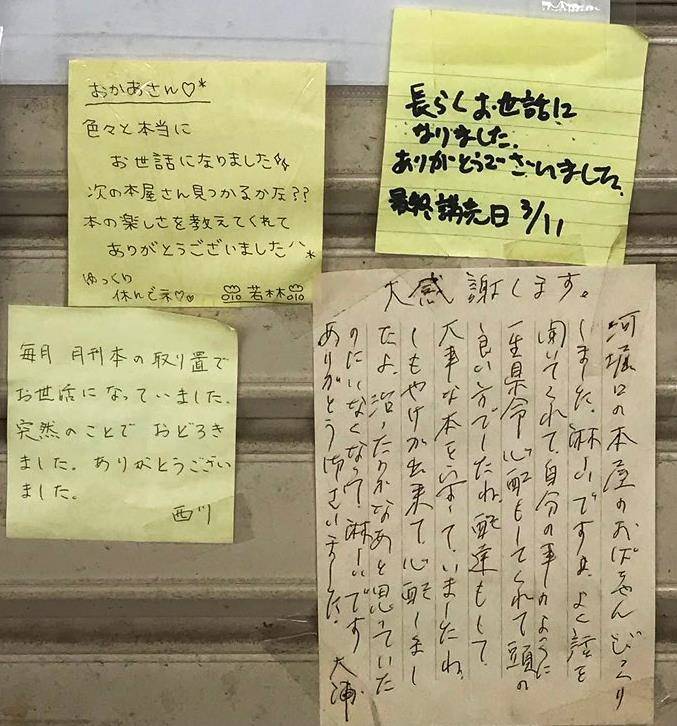 おかあさん♡*
色々と本当に
お世話になりました
次の本屋さん見つかるかな??
本の楽しさを教えてくれて
ありがとうございました^^*
ゆっくり
休んでネ♡♡
若林
長らくお世話に
なりました.
ありがとうございました.
最終購売日 3/11
毎月 月刊本の取り置で
お世話になっていました.
突然のことで おどろき
ました。ありがとうござい
ました。
西川
大感謝します。
河堀口の本屋のおばちゃんびっくり
しました。淋しいですよ、よく話を
聞いてくれて、自分の事のように
一生県命心配もしてくれて頭の
良い方でしたね。配達もして
大事な本をいすって、いましたね。
しもやけが出来て、心配しまし
たよ、治ったのかなあと思っていた
のにいなくなって、淋しいです
ありがとうございました。
大浦